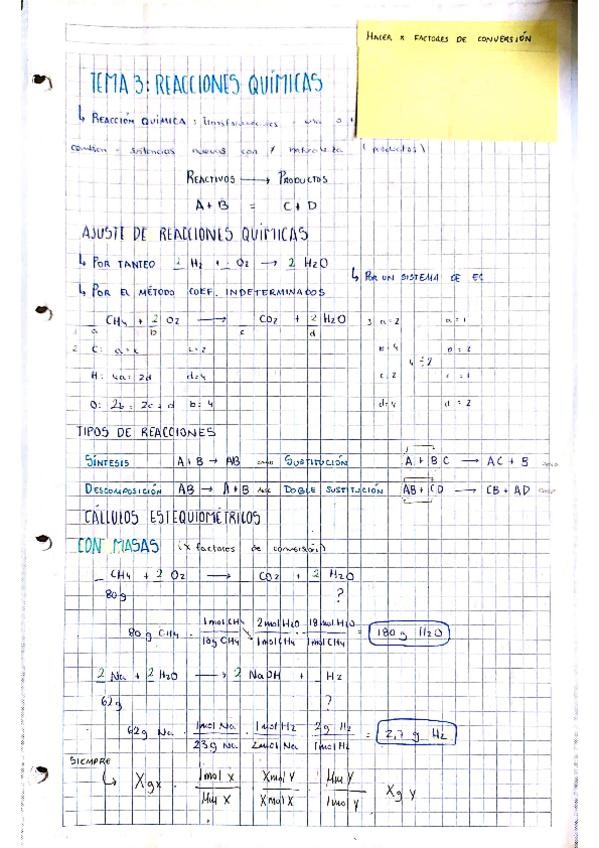 HACER X FACTORES DE CONVERSIÓN
TEMA 3: REACCIONES QUÍMICAS
↳ REACCIÓN QUÍMICA:
sustancias nuevas con ≠ naturaleza (productos)
REACTIVOS → PRODUCTOS
A + B = C + D
AJUSTE DE REACCIONES QUÍMICAS
↳ POR TANTEO _ H2 + _ O2 → 2 H2O
↳ POR UN SISTEMA DE EC
↳ POR EL MÉTODO COEF. INDETERMINADOS
_ CH4 + 2 O2 → _ CO2 + 2 H2O
a b c d
3 a=2 a=1
2 C: a=c c=2
b=4 b=2
÷2
H: 4a=2d d=4
c=2 c=1
O: 2b=2c+d b=4
d=4 d=2
TIPOS DE REACCIONES
SÍNTESIS A+B → AB SUSTITUCIÓN A + BC → AC + B
DESCOMPOSICIÓN AB → A+B DOBLE SUSTITUCIÓN AB + CD → CB + AD
CÁLCULOS ESTEQUIOMÉTRICOS
CON MASAS (x factores de conversión)
_ CH4 + 2 O2 → _ CO2 + 2 H2O
80g ?
80g CH4 · 1mol CH4 / 16g CH4 · 2mol H2O / 1mol CH4 · 18 H2O / = 180 g H2O
2 Na + 2 H2O → 2 NaOH + _ H2
62g ?
62g Na · 1mol Na / 23g Na · 1mol H2 / 2mol Na · 2g H2 / 1mol H2 = 2,7 g H2
SIEMPRE
↳ Xgx · 1mol X / Mm X · Xmol Y / Xmol X · Mm Y / 1mol Y Xg Y